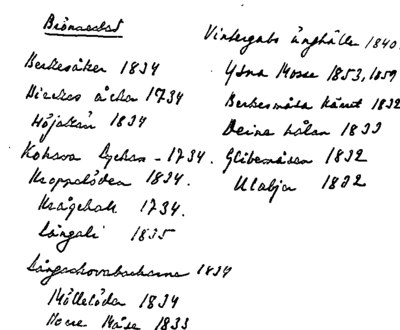 Brönnestad
Berkesåker 1834
Birckes åcker 1734
Höjaltän 1834
Kohava Lyckan - 1734.
Kroppalöden 1834.
Krågehall 1734.
Långali 1835
Långaskovabackarna 1834
Möllelöden 1834
Norre Måse 1833
Vintergabs änghälle 1840.
Ydna Mosse 1853, 1859
Berkesmåsa Kärret 1832
Deina hålan 1833
Glibemåsen 1832
Ulalja 1832